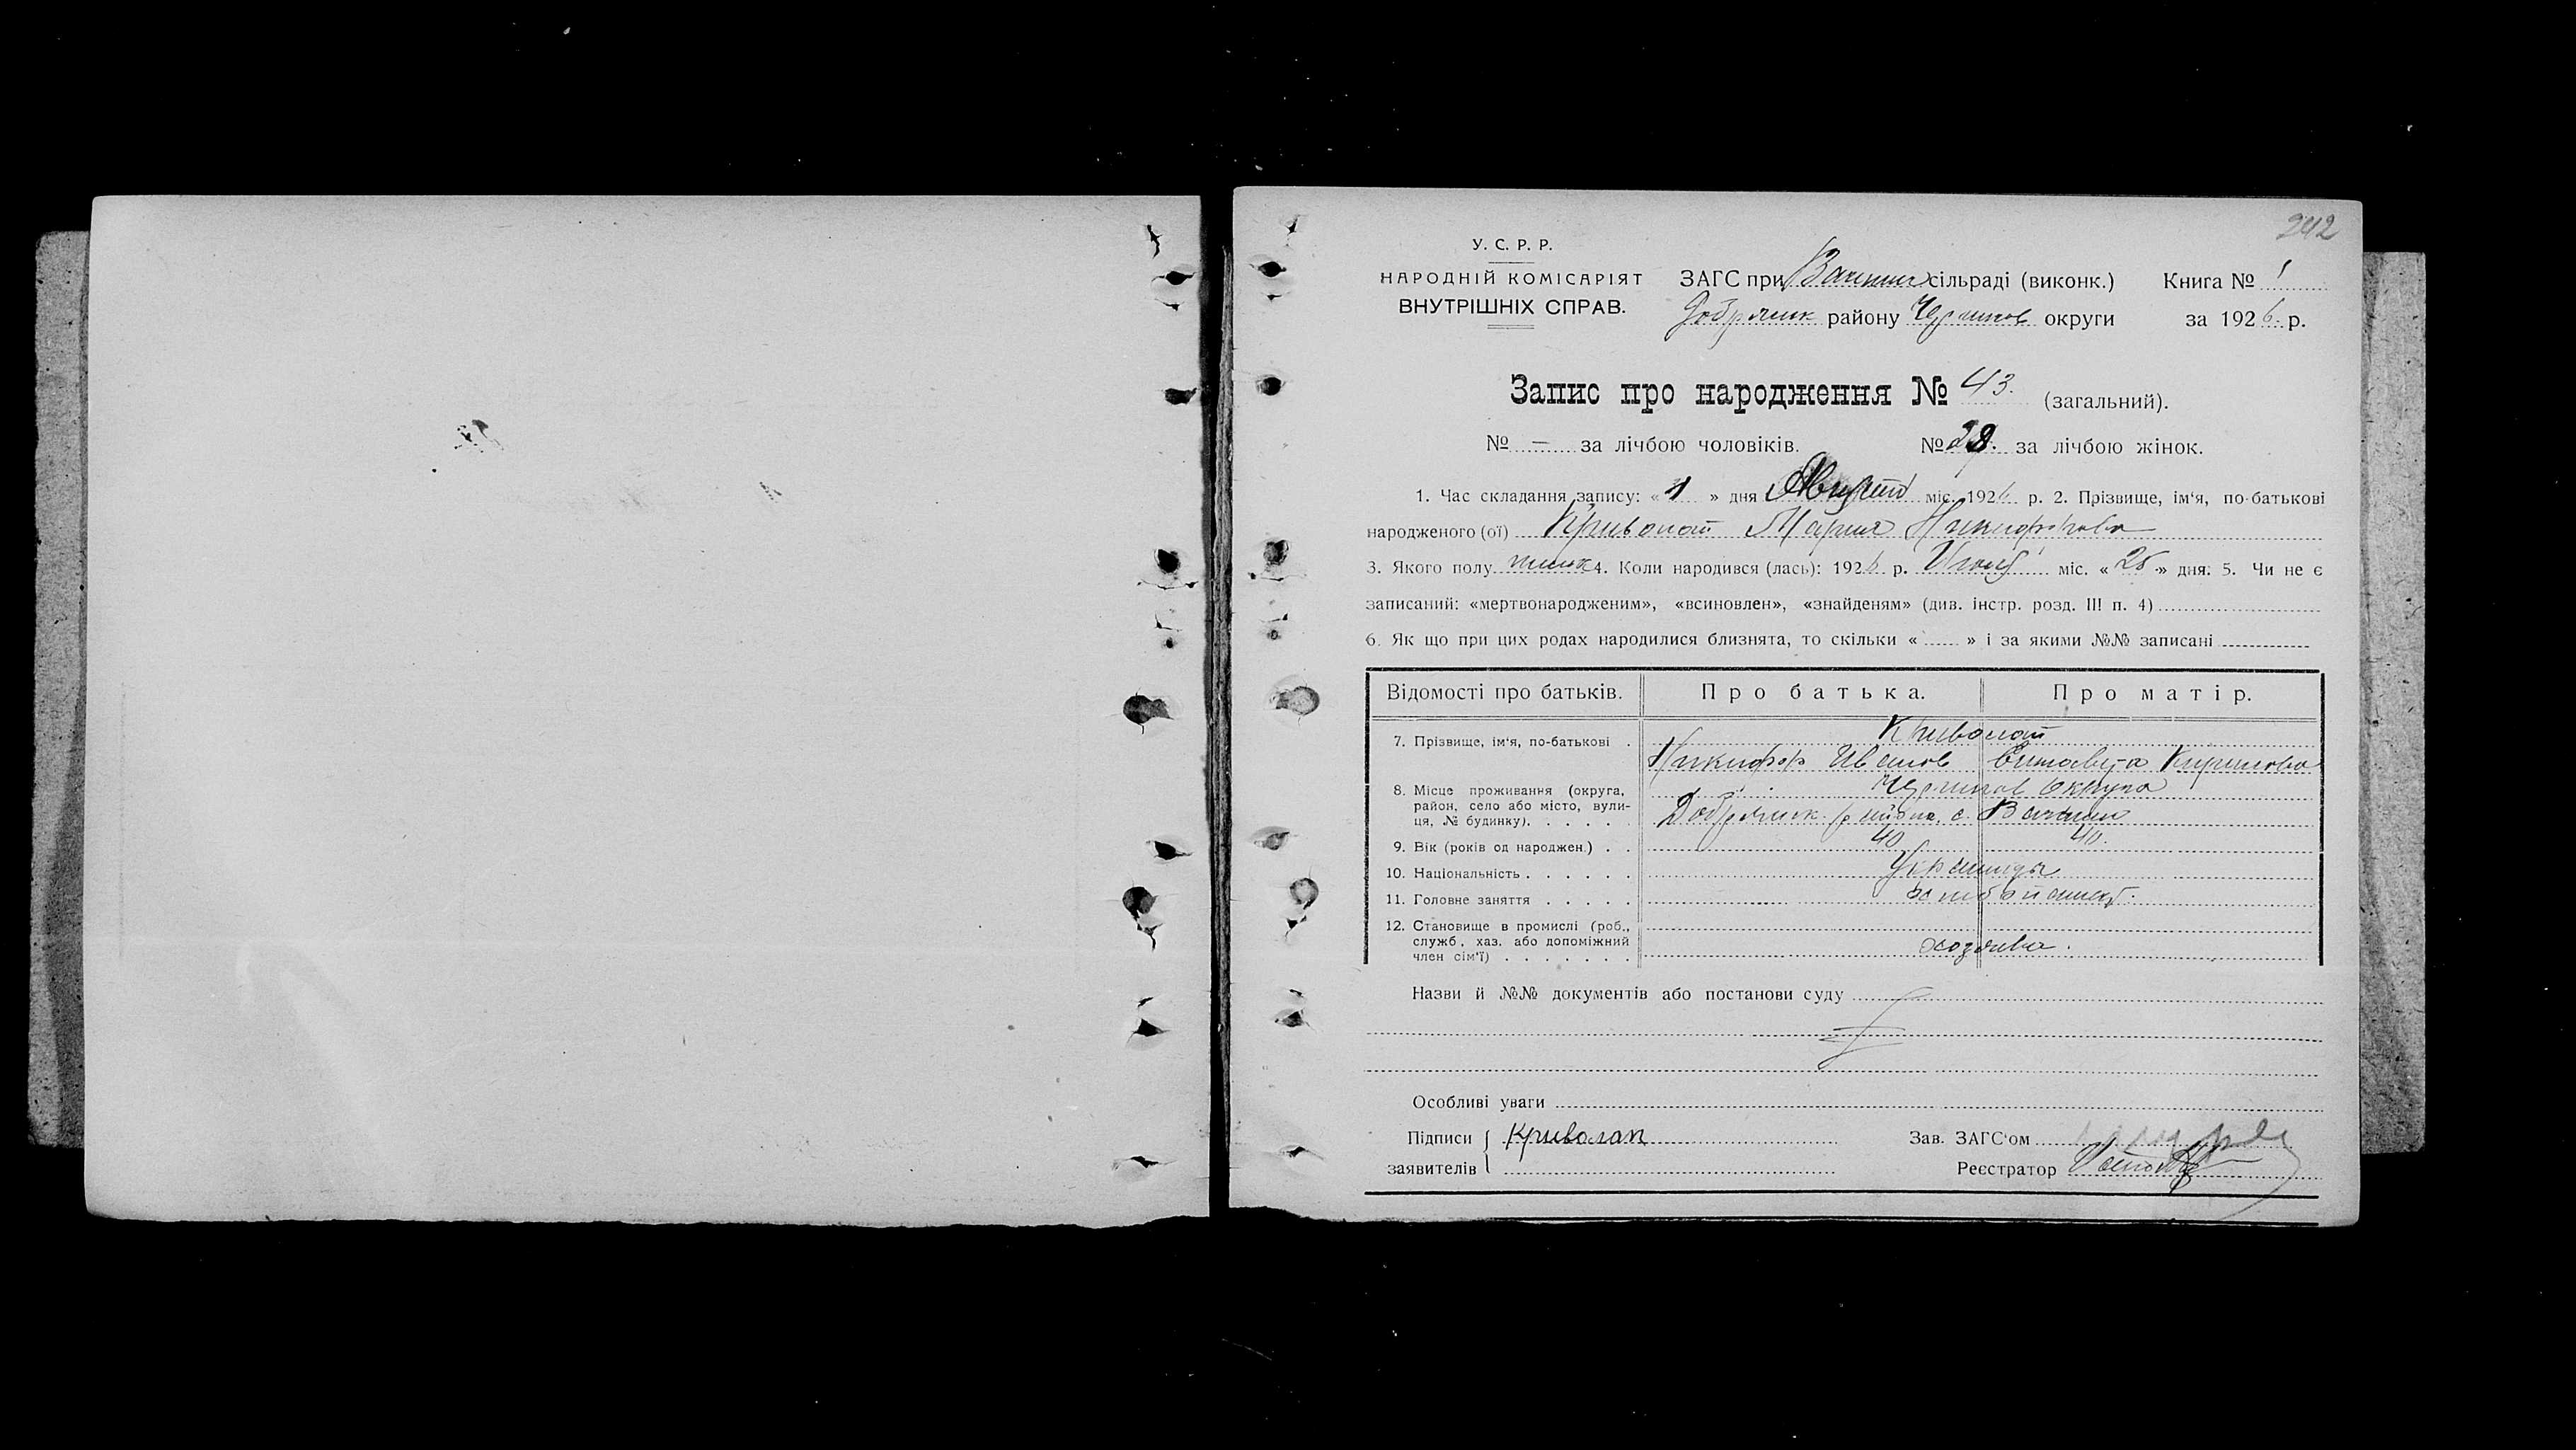 242
У. С. Р. Р.
НАРОДНІЙ КОМІСАРІЯТ
ВНУТРІШНІХ СПРАВ.
ЗАГС при сільраді (виконк.) Книга № 1
району округи за 1926 р.
Запис про народження № 43. (загальний).
№ — за лічбою чоловіків. № 28. за лічбою жінок.
1. Час складання запису: « 1 » дня Август міс. 1926 р. 2. Прізвище, ім‘я, по-батькові
народженого (ої) Криволап Мария Никифорова
3. Якого полу 4. Коли народився (лась): 1926 р. міс. « » дня: 5. Чи не є
записаний: «мертвонародженим», «всиновлен», «знайденям» (див. інстр. розд. III п. 4)
6. Як що при цих родах народилися близнята, то скільки « » і за якими №№ записані
Відомості про батьків. Про батька. Про матір.
7. Прізвище, ім‘я, по-батькові . Криволап
Никифор Иванов Кирилова
8. Місце проживання (округа, округа
район, село або місто, вули-
ця, № будинку). района, с.
9. Вік (років од народжен.) . . 40 40.
10. Національність . . . . . . Украинцы
11. Головне заняття . . . . .
12. Становище в промислі (роб.,
служб., хаз. або допоміжний хозяева.
член сім‘ї) . . . . . . .
Назви й №№ документів або постанови суду
Особливі уваги
Підписи Криволап Зав. ЗАГС‘ом
заявителів Реєстратор